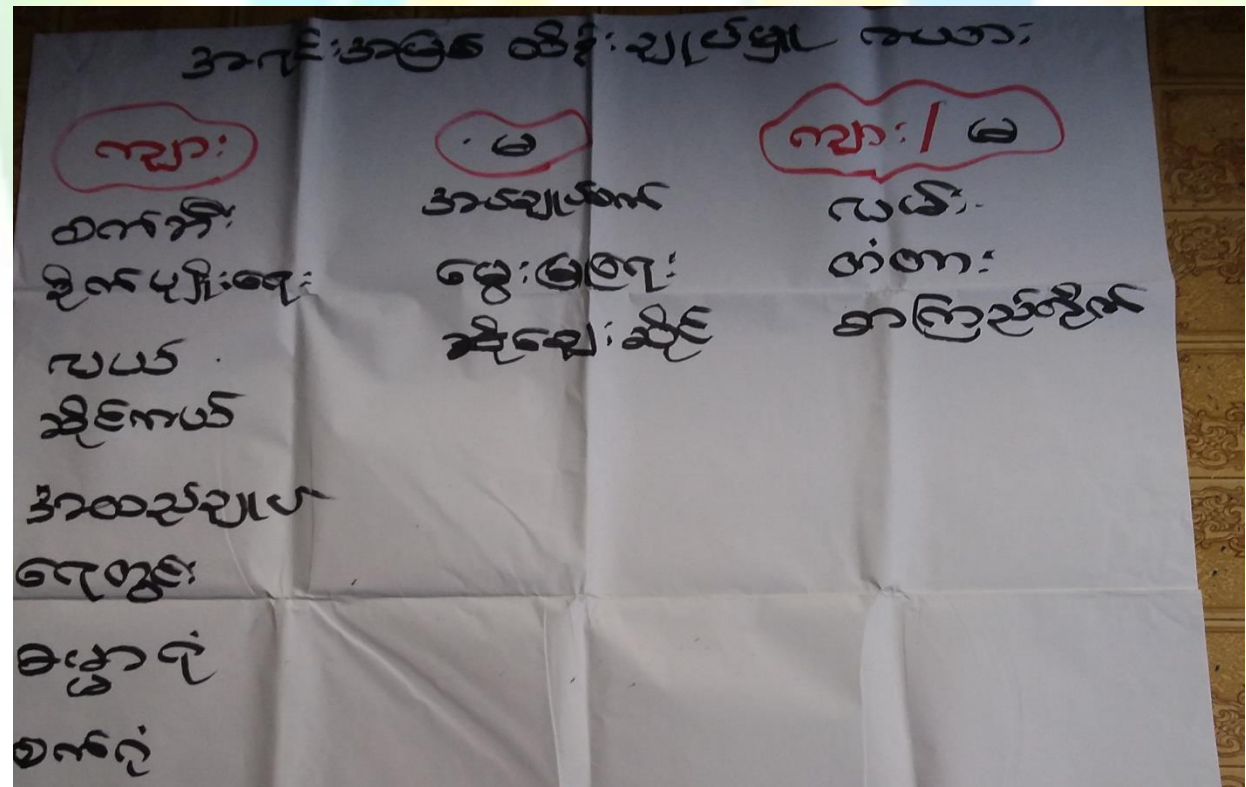 အရင်းအမြစ် ထိန်းချုပ်မှု ဇယား
ကျား
မ
ကျား / မ
စက်ဘီး
စိုက်ပျိုးရေး
လယ်
ဆိုင်ကယ်
အထည်ချုပ်
ရေတွင်း
စက်ရုံ
အပ်ချုပ်စက်
မွေးမြူရေး
ဈေးဆိုင်
လမ်း
တံတား
စာကြည့်တိုက်